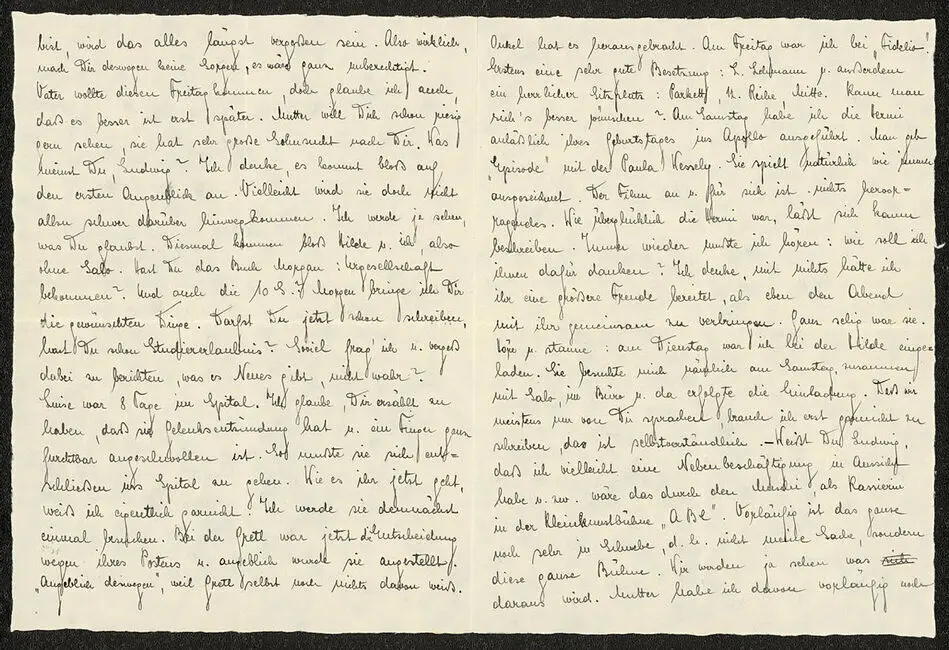 bist, wird das alles längst vergessen sein. Also wirklich,
mach Dir deswegen keine Sorgen, es wäre ganz unberechtigt.
Vater wollte diesen Freitag kommen, doch glaube ich auch,
daß es besser ist erst später. Mutter will Dich schon riesig
gern sehen, sie hat sehr große Sehnsucht nach Dir. Was
meinst Du Ludwig? Ich denke, es kommt bloß auf
den ersten Augenblick an. Vielleicht wird sie doch nicht
allzu schwer darüber hinwegkommen. Ich werde ja sehen,
was Du glaubst. Diesmal kommen bloß Hilde u. ich also
ohne Salo. Hast Du das Buch Morgan: Urgesellschaft
bekommen? Und auch die 10 S.? Morgen bringe ich Dir
die gewünschten Dinge. Darfst Du jetzt schon schreiben,
hast Du schon Studiererlaubnis? Soviel frag' ich u. vergeß
dabei zu berichten, was es Neues gibt, nicht wahr?
Luise war 8 Tage im Spital. Ich glaube, Dir erzählt zu
haben, daß sie Gelenksentzündung hat u. ein Finger ganz
furchtbar angeschwollen ist. So mußte sie sich ent=
schließen ins Spital zu gehen. Wie es ihr jetzt geht,
weiß ich eigentlich garnicht. Ich werde sie demnächst
einmal besuchen. Bei der Gretl war jetzt die Entscheidung
wegen ihres Postens u. angeblich wurde sie angestellt.
"Angeblich deswegen", weil Gretl selbst noch nichts davon weiß.
Onkel hat es herausgebracht. Am Freitag war ich bei "Fidelio"!
Erstens eine sehr gute Besetzung: L. Lehmann u. außerdem
ein herrlicher Sitzplatz: Parkett, 11. Reihe, Mitte. Kann man
sich's besser wünschen? Am Samstag habe ich die Hermi
anläßlich ihres Geburtstages ins Apollo ausgeführt. Man gab
"Episode" mit der Paula Wessely. Sie spielt natürlich wie immer
ausgezeichnet. Der Film an u. für sich ist nichts hervor=
ragendes. Wie überglücklich die Hermi war, läßt sich kaum
beschreiben. Immer wieder mußte ich hören: wie soll ich
ihnen dafür danken? Ich denke, mit nichts hätte ich
ihr eine größere Freude bereitet, als eben den Abend
mit ihr gemeinsam zu verbringen. Ganz selig war sie.
Höre u. staune: am Dienstag war ich bei der Hilde einge=
laden. Sie besuchte mich nämlich am Samstag, zusammen
mit Salo, im Büro u. da erfolgte die Einladung. Daß wir
meistens nur von Dir sprachen, brauch ich erst garnicht zu
schreiben, das ist selbstverständlich. – Weißt Du Ludwig,
daß ich vielleicht eine Nebenbeschäftigung in Aussicht
habe u. zw. wäre das durch den Mundi, als Kassierin
in der Kleinkunstbühne "ABC". Vorläufig ist das ganze
noch sehr in Schwebe, d. h. nicht meine Sache, sondern
diese ganze Bühne. Wir werden ja sehen was
daraus wird. Mutter habe ich davon vorläufig noch